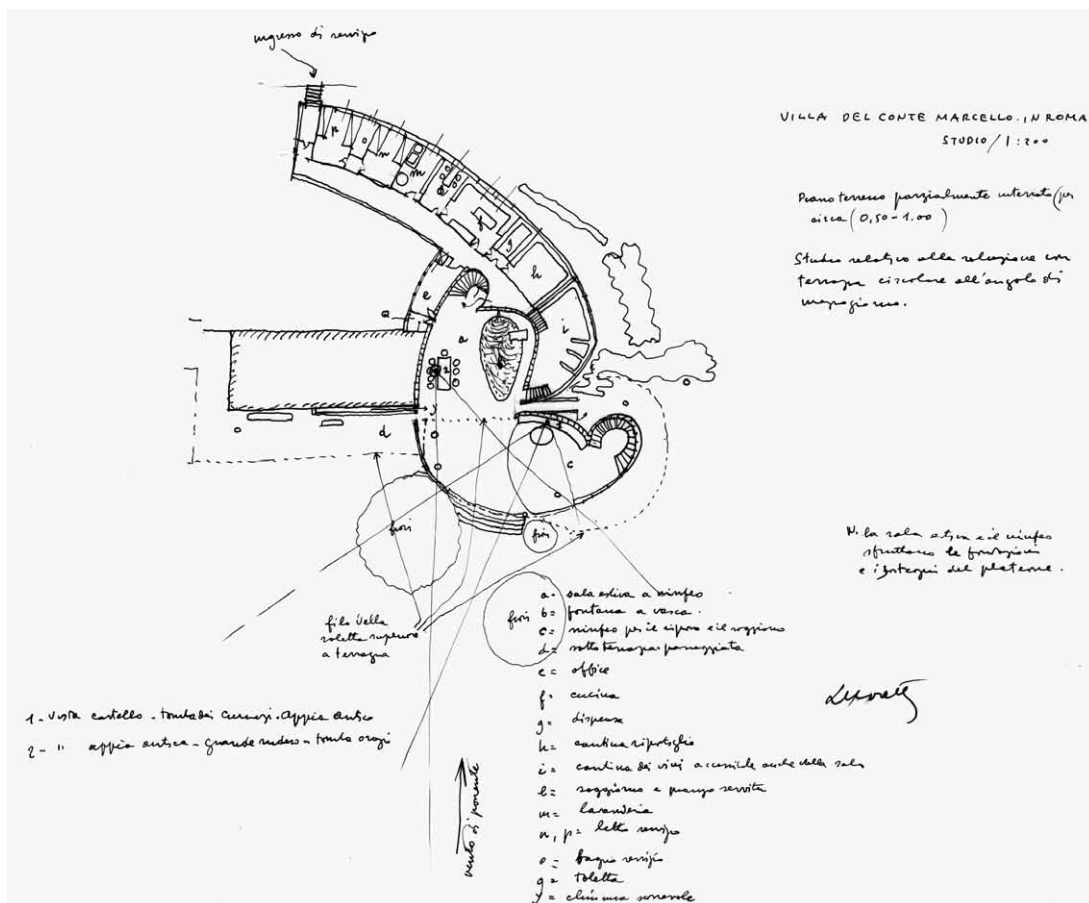 ingresso di servizio
VILLA DEL CONTE MARCELLO. IN ROMA
STUDIO / 1:200
Piano terreno parzialmente interrato (per
circa (0,50-1.00)
Studio relativo alla relazione con
terrazza circolare all'angolo di
mezzogiorno.
p
o
n
m
l
f
g
h
i
e
a
d
c
fiori
fiori
fiori
N. la sala estiva e il ninfeo
sfruttano le fondazioni
e i sostegni del
filo della
soletta superiore
a terrazza
a = sala estiva a ninfeo
b = fontana a vasca.
c = ninfeo per il riposo e il soggiorno
d = sotto terrazza
e = office
f = cucina
g = dispensa
h = cantina ripostiglio
i = cantina dei vini accessibile anche dalla sala
l = soggiorno e pranzo servitù
m = lavanderia
n, p = letto servizio
o = bagno servizio
q = toletta
= chiusura scorrevole
1 - Vista castello - tomba dei Curiazi - Appia antica
2 - " appia antica - grande rudero - tomba orazi
vento di ponente